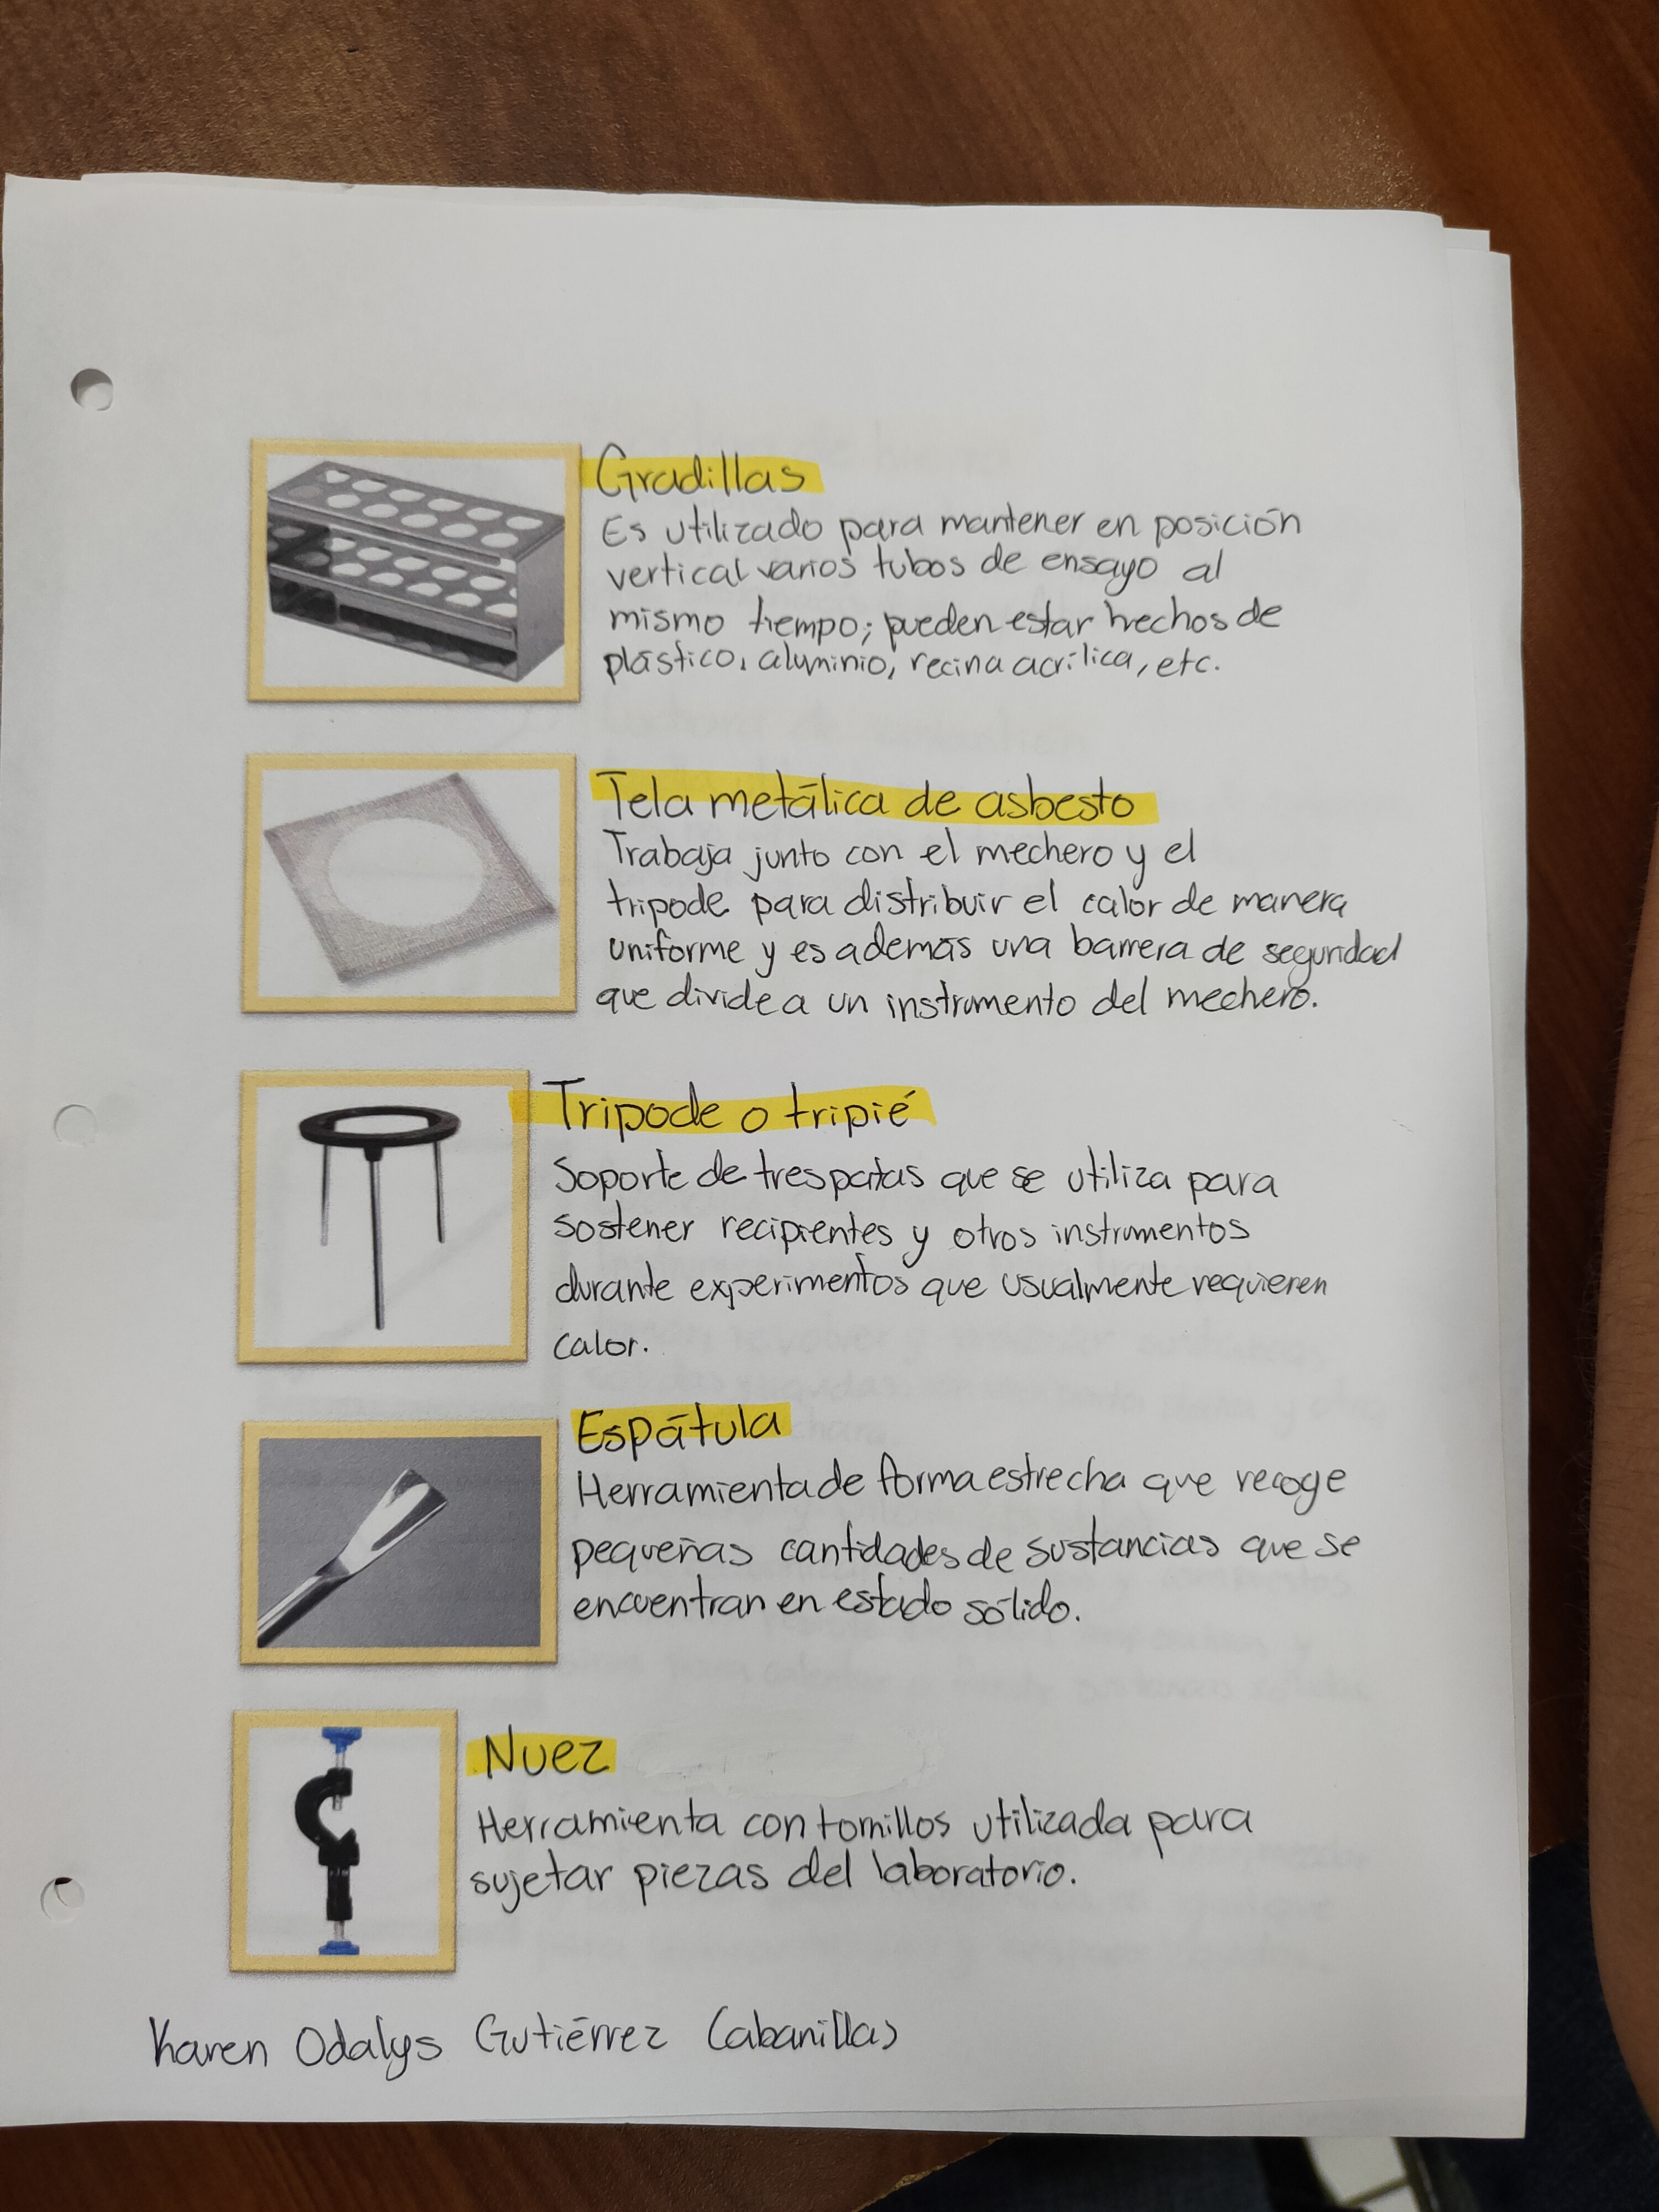 Gradillas
Es utilizado para mantener en posición
vertical varios tubos de ensayo al
mismo tiempo; pueden estar hechos de
plástico, aluminio, recina acrílica, etc.
Tela metálica de asbesto
Trabaja junto con el mechero y el
tripode para distribuir el calor de manera
uniforme y es además una barrera de seguridad
que divide a un instrumento del mechero.
Tripode o tripié
Soporte de tres patas que se utiliza para
sostener recipientes y otros instrumentos
durante experimentos que usualmente requieren
calor.
Espátula
Herramienta de forma estrecha que recoge
pequeñas cantidades de sustancias que se
encuentran en estado sólido.
Nuez
Herramienta con tornillos utilizada para
sujetar piezas del laboratorio.
Karen Odalys Gutiérrez Cabanillas